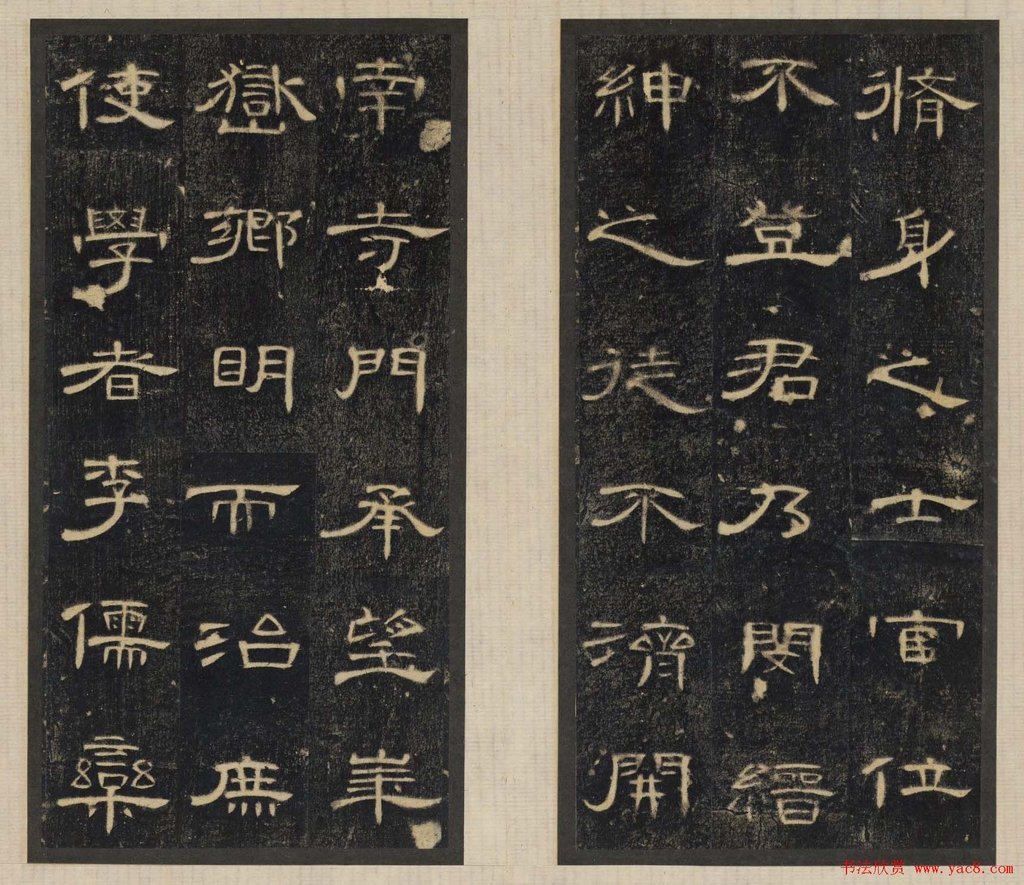 脩身之士官位
不登君乃閔縉
紳之徒不濟開
南寺門承望華
嶽鄉明而治庶
使學者李儒欒
书法欣赏 www.yac8.com